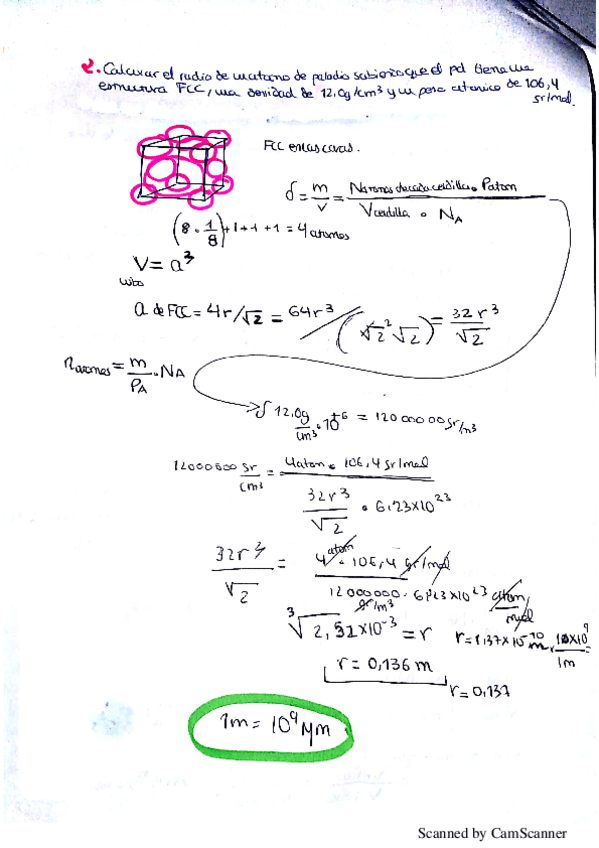 2. Calcular el radio de un atomo de paladio sabiendo que el pd tiene una
estructura FCC, una densidad de 12.0g/cm³ y un peso atomico de 106,4
gr/mol.
FCC en las caras.
δ = m/V = Natomos de cada celdilla · Patom / Vceldilla · NA
(8 · 1/8) + 1 + 1 + 1 = 4 atomos
V = a³
cubo
a de FCC = 4r/√2 = 64r³ / (√2² √2) = 32r³/√2
natomos = m/PA · NA
δ 12,0g/cm³ · 10⁺⁶ = 12000000 gr/m³
12000000 gr/cm³ = 4 atom · 106,4 gr/mol / 32r³/√2 · 6,23x10²³
32r³/√2 = 4 atom · 106,4 gr/mol / 12000000 gr/m³ · 6,23x10²³ atom/mol
³√2,51x10⁻³ = r
r = 1,37x10⁻¹⁰ m · 10x10⁹/1m
r = 0,136 m
r = 0,137
1m = 10⁹ ηm
Scanned by CamScanner